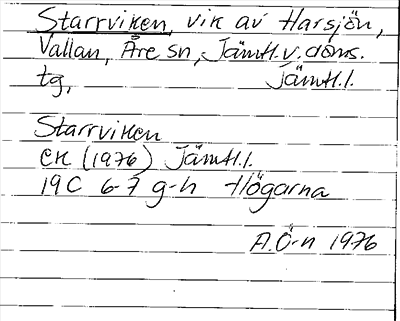 Starrviken, vik av Harsjön,
Vallan, Åre sn, Jämtl.v.doms.
tg, Jämtl.l.
Starrviken
EK (1976) Jämtl.l.
19C 6-7 g-h Högarna
A.Ö-n 1976